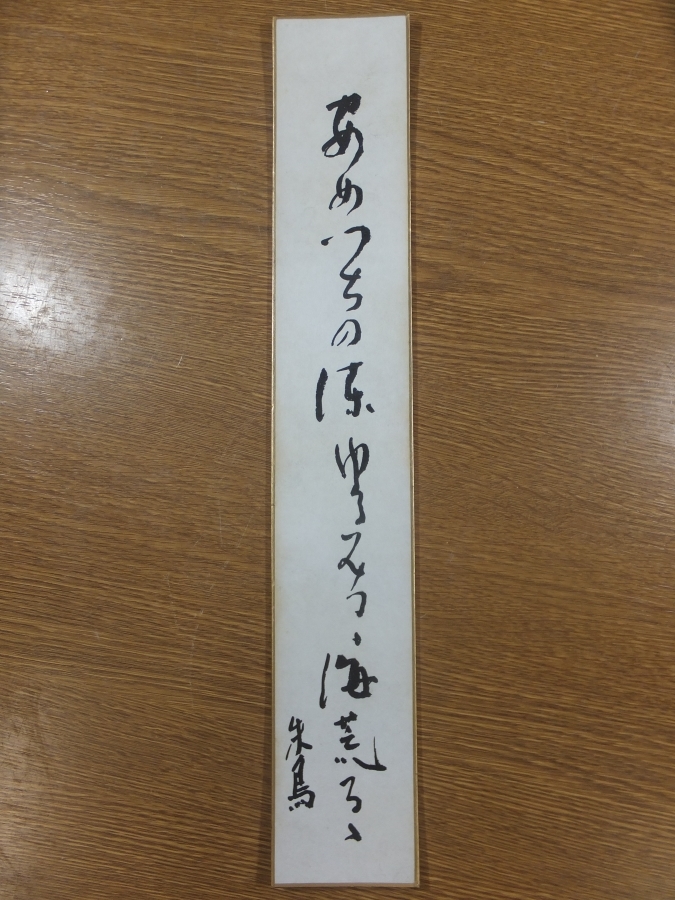 あめつちの凍ゆるみつゝ海荒るゝ
朱鳥